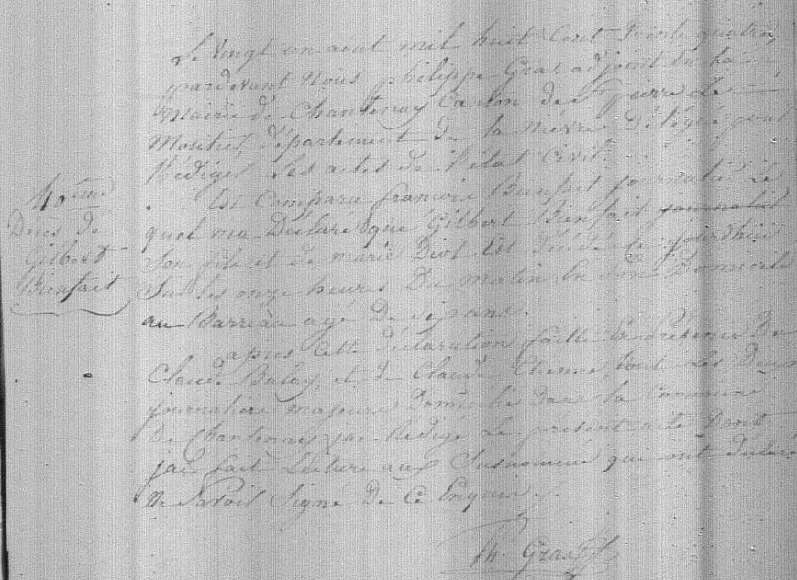 Le vingt un aout mil huit Cent trente quatre,
pardevant Nous philippe Gras adjoint de La
Mairie de Chantenay Canton de St pierre Le
Moutier, département de La Nievre délégué pour
Rédiger Les actes de l'état Civil.
Est Comparu francois Bienfait journalié Le
quel ma Déclaré que Gilbert Bienfait journalié
Son fils et de marie Diot Est Décédé jourdhui
Sur Les onze heures Du matin En son Domicile
au Barreau agé De ans.
apres Cette déclaration faitte En présence De
Claude Balay et de Claude tout Les Deux
journaliers majeurs Demeurant dans La Commune
De Chantenay jai Rédigé Le présent acte Dont
jai fait Lecture aux Susnommé qui ont déclaré
Ne Savoir Signé De Ce Enquis.
40eme
Décès de
Gilbert
Bienfait
Ph. Gras